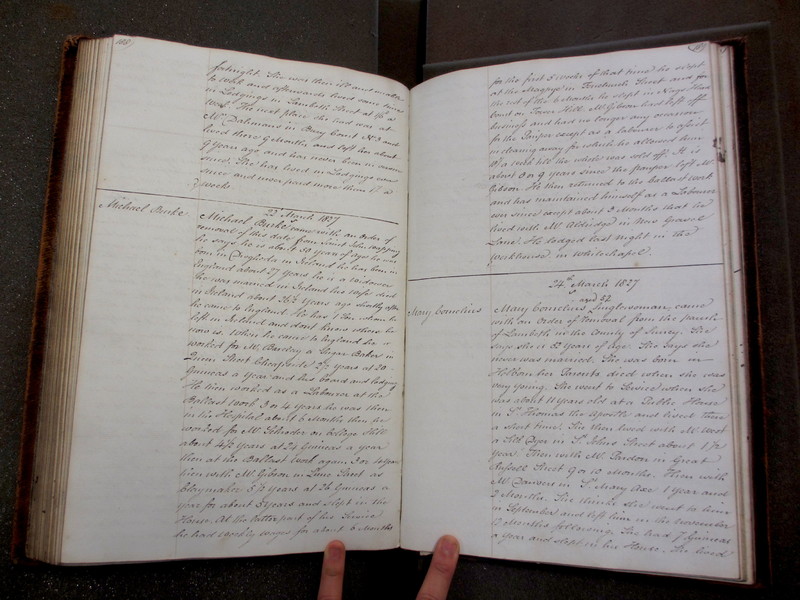 168
fortnight. She was then ill and unable
to Work and afterwards lived some time
in Lodgings in Lambeth Street at 1/6 a
Week. The next place she had was at
Mr Dalmans in Bury Court No 3 and
lived there 9 Months and left her about
9 Years ago and has never been in service
since. She has lived in Lodgings ever
since and never paid more than 1/ a
Week.
23 March 1827
Michael Burke
Michael Burke came with an Order of
removal of this date from Saint John Wapping
he says he is about 50 years of Age he was
born in Drogheda in Ireland he has been in
England about 27 years he is a widower
he was married in Ireland his wife died
in Ireland about 26½ Years ago shortly after
he came to England. He has 1 Son whom he
left in Ireland and dont know where he
now is. When he came to England he
worked for Mr Barclay a Sugar Baker in
Queen Street Cheapside 2½ years at 20
Guineas a Year and his board and lodging
He then worked as a Labourer at the
Ballast Work 3 or 4 Years he was then
in the Hospital about 6 Months then he
worked for Mr Schrader on College Hill
about 4½ Years at 24 Guineas a year
then at the Ballast Work again 3 or 4 Years
then with Mr Gibson in Lime Street as
Claymaker 5½ Years at 26 Guineas a
year for about 5 Years and slept in the
House. At the latter part of his Service
he had weekly wages for about 6 Months
169
for the first 5 weeks of that time he slept
at the Magpye in Fenchurch Street and for
the rest of the 6 Months he slept in Nags Head
Court on Tower Hill. Mr Gibson had left off
business and had no longer any occasion
for the Pauper except as a labourer to assist
in clearing away for which he allowed him
of a week till the whole was sold off. It is
about 8 or 9 years since the pauper left Mr
Gibson. He then returned to the ballast work
and has maintained himself as a Labourer
ever since except about 3 Months that he
lived with Mr Aldridge in New Gravel
Lane. He lodged last night in the
Workhouse in Whitechapel.
24th March 1827
Mary Cornelius
aged 52
Mary Cornelius Singlewoman came
with an Order of removal from the parish
of Lambeth in the County of Surrey. She
says she is 52 Years of age. She says she
never was married. She was born in
Holborn her Parents died when she was
very young. She went to Service when she
was about 11 years old at a Public House
in St Thomas the Apostle and lived there
a short time. She then lived with Mr West
a Silk Dyer in St Johns Street about 1½
Year. Then with Mr Pardon in Great
Russell Street 9 or 10 Months. Then with
Mr Danvers in St Mary Axe 1 Year and
2 Months. She thinks she went to him
in September and left him in the November
12 Months following. She had 7 Guineas
a Year and slept in his House. She lived